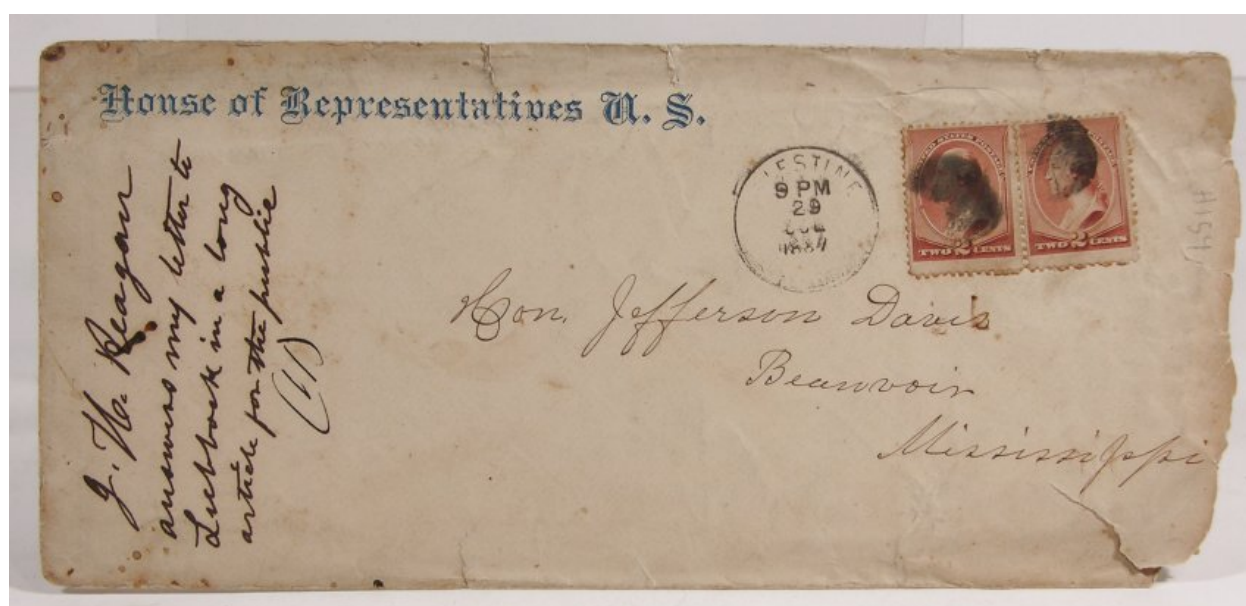 House of Representatives U. S.
J. H. Reagan
answers my letter to
Lubbock in a long
article for the public
(11)
LESTINE
9 PM
29
1887
TWO 2 CENTS
TWO 2 CENTS
Hon. Jefferson Davis
Beauvoir
Mississippi